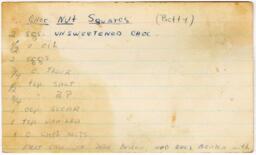 Choc Nut Squares (Betty)
2 sqs. UNSWEETENED CHOC.
1/3 c OIL
2 EGGS
3/4 C. FLOUR
1/2 tsp SALT
1/2 " BP
1 cup SUGAR
1 tsp VANILLA
1 C CHOP NUTS